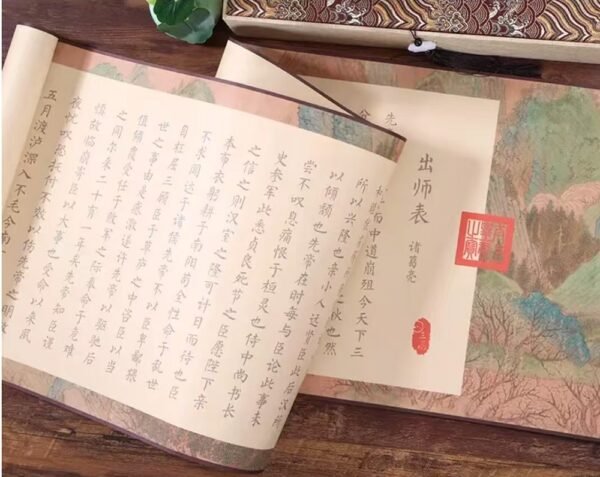 出师表
诸葛亮
先
中道崩殂今天下三
之秋也然
所以兴隆也亲小人远贤臣此后汉所
以倾颓也先帝在时每与臣论此事未
尝不叹息痛恨于桓灵也侍中尚书长
史参军此悉贞良死节之臣愿陛下亲
之信之则汉室之隆可计日而待也臣
本布衣躬耕于南阳苟全性命于乱世
不求闻达于诸侯先帝不以臣卑鄙猥
自枉屈三顾臣于草庐之中咨臣以当
世之事由是感激遂许先帝以驱驰后
值倾覆受任于败军之际奉命于危难
之间尔来二十有一年矣先帝知臣谨
慎故临崩寄臣以大事也受命以来夙
夜忧叹恐托付不效以伤先帝之明故
五月渡泸深入不毛今南